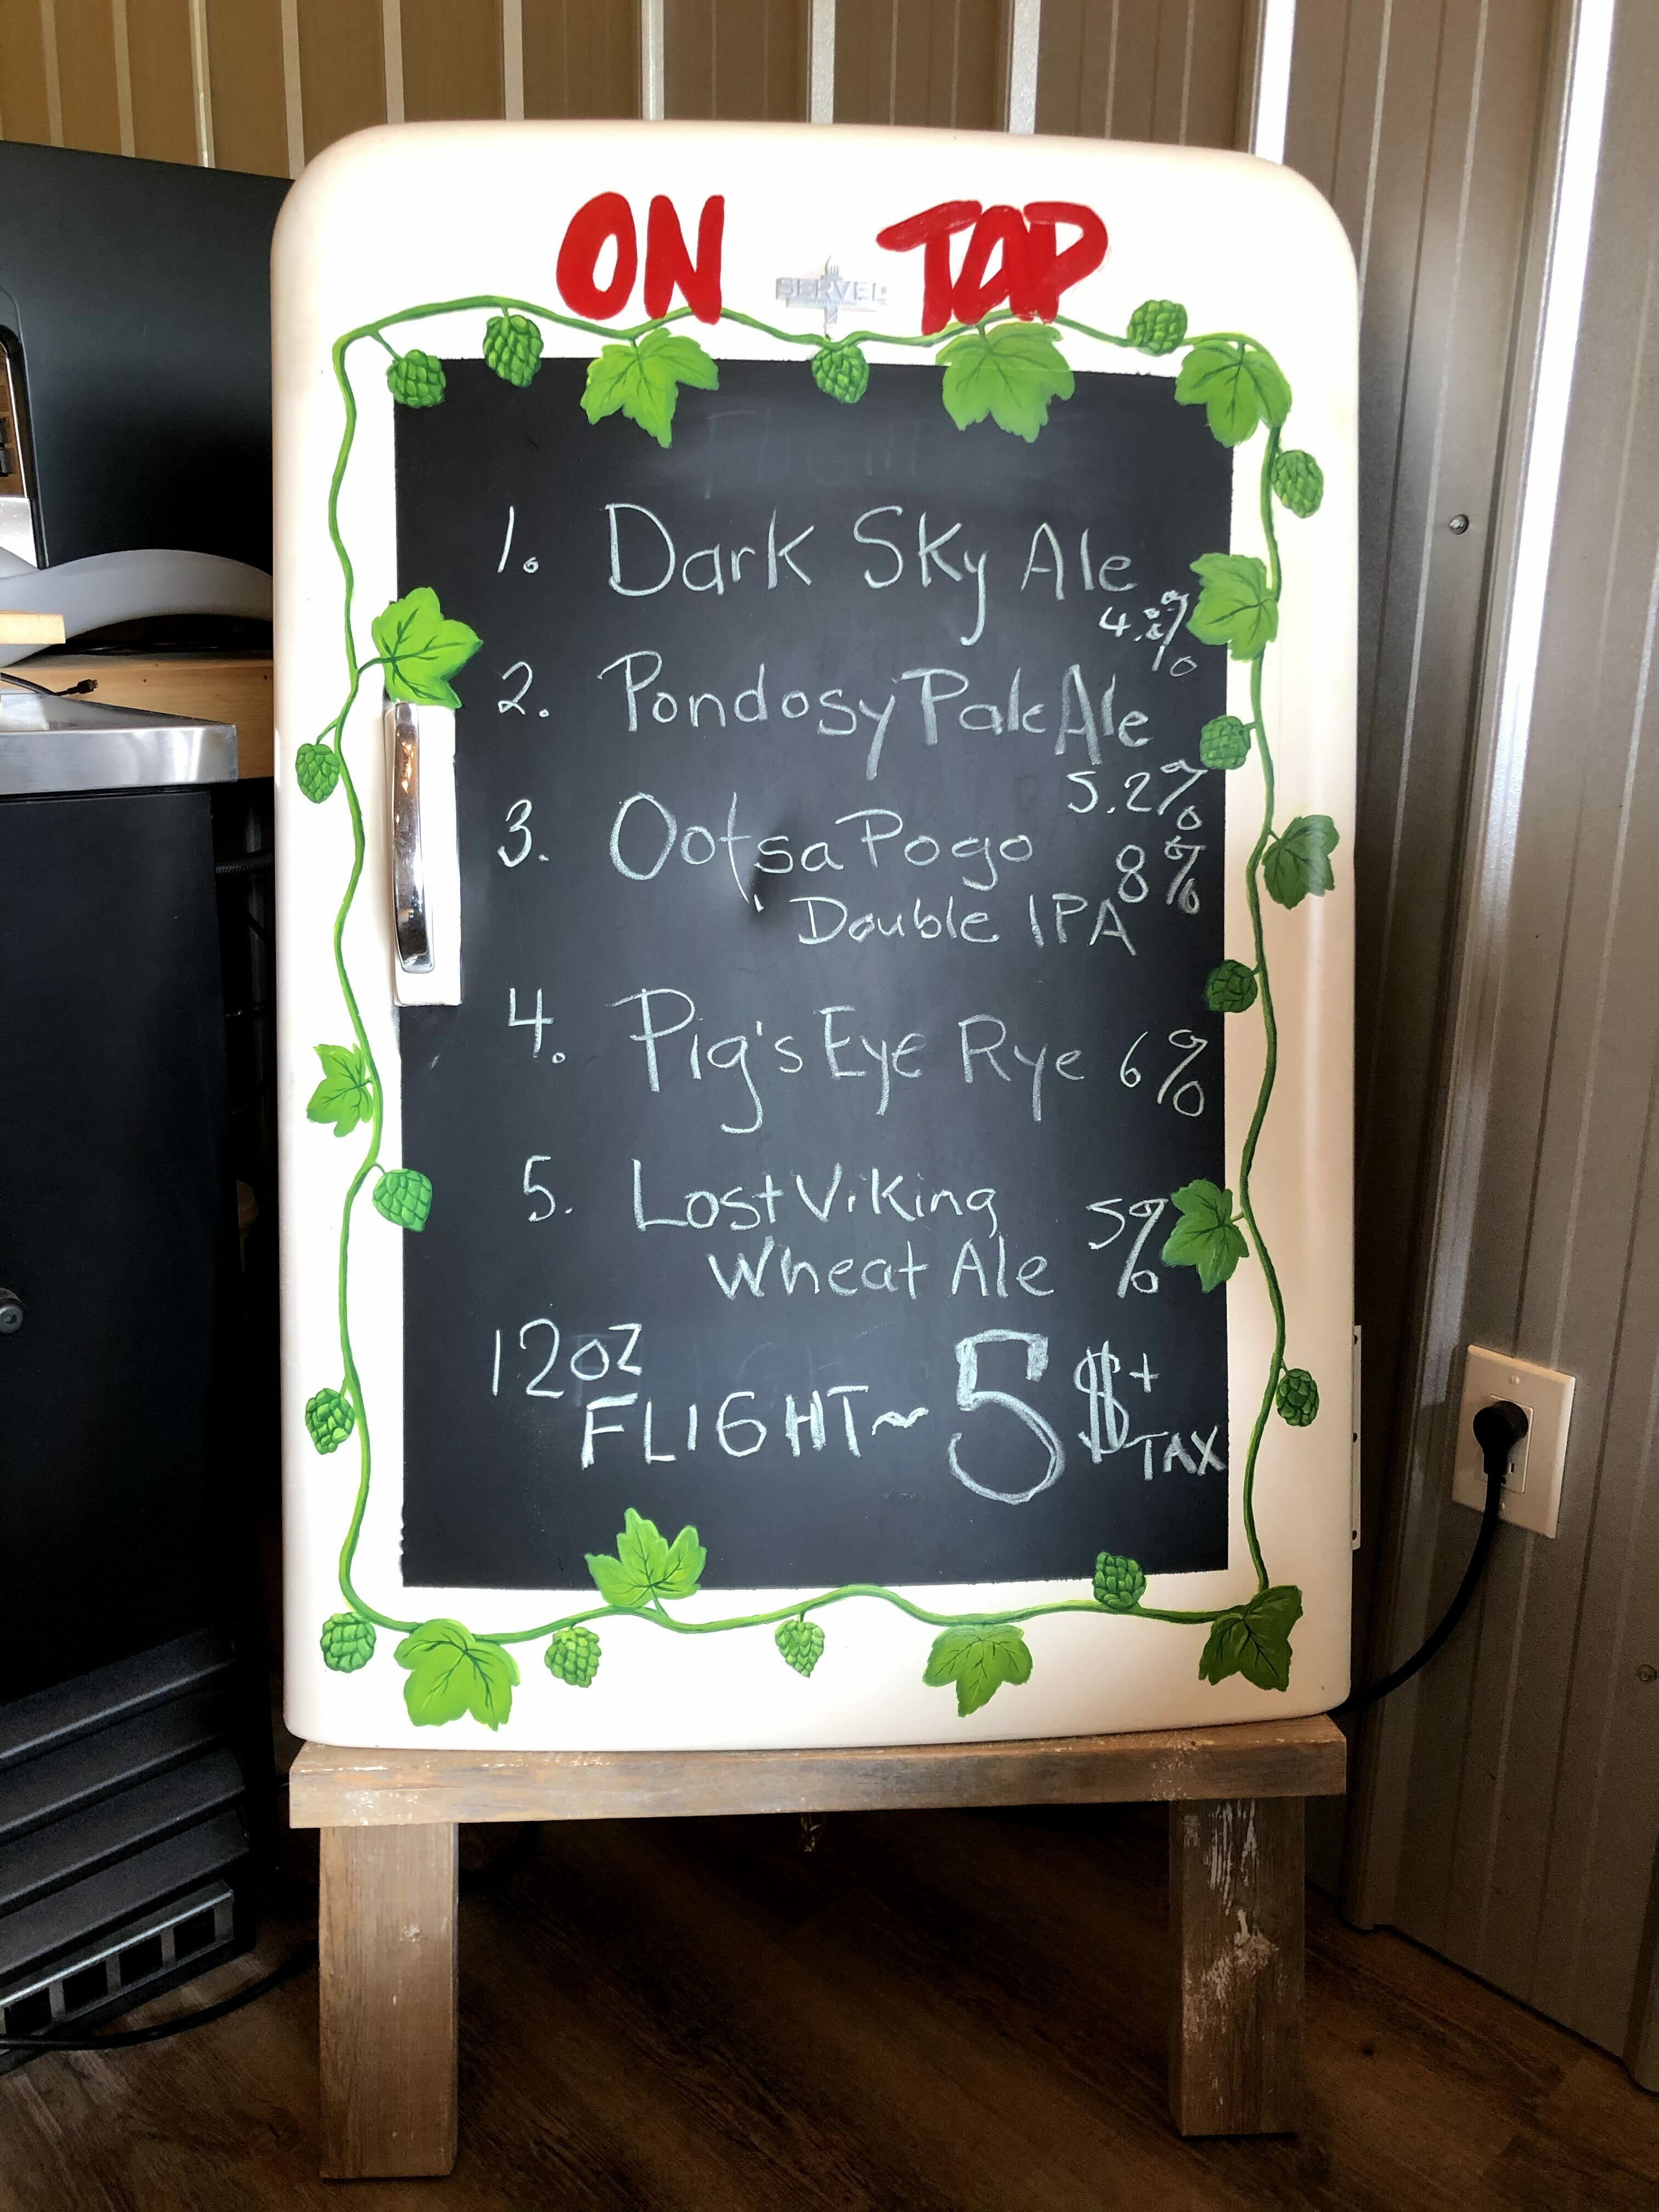 ON TAP
SERVEL
1. Dark Sky Ale
2. Pondosy Pale Ale
5.2%
3. Ootsa Pogo 8%
Double IPA
4. Pig's Eye Rye 6%
5. Lost Viking
Wheat Ale 5%
12oz
FLIGHT~ 5$+
TAX